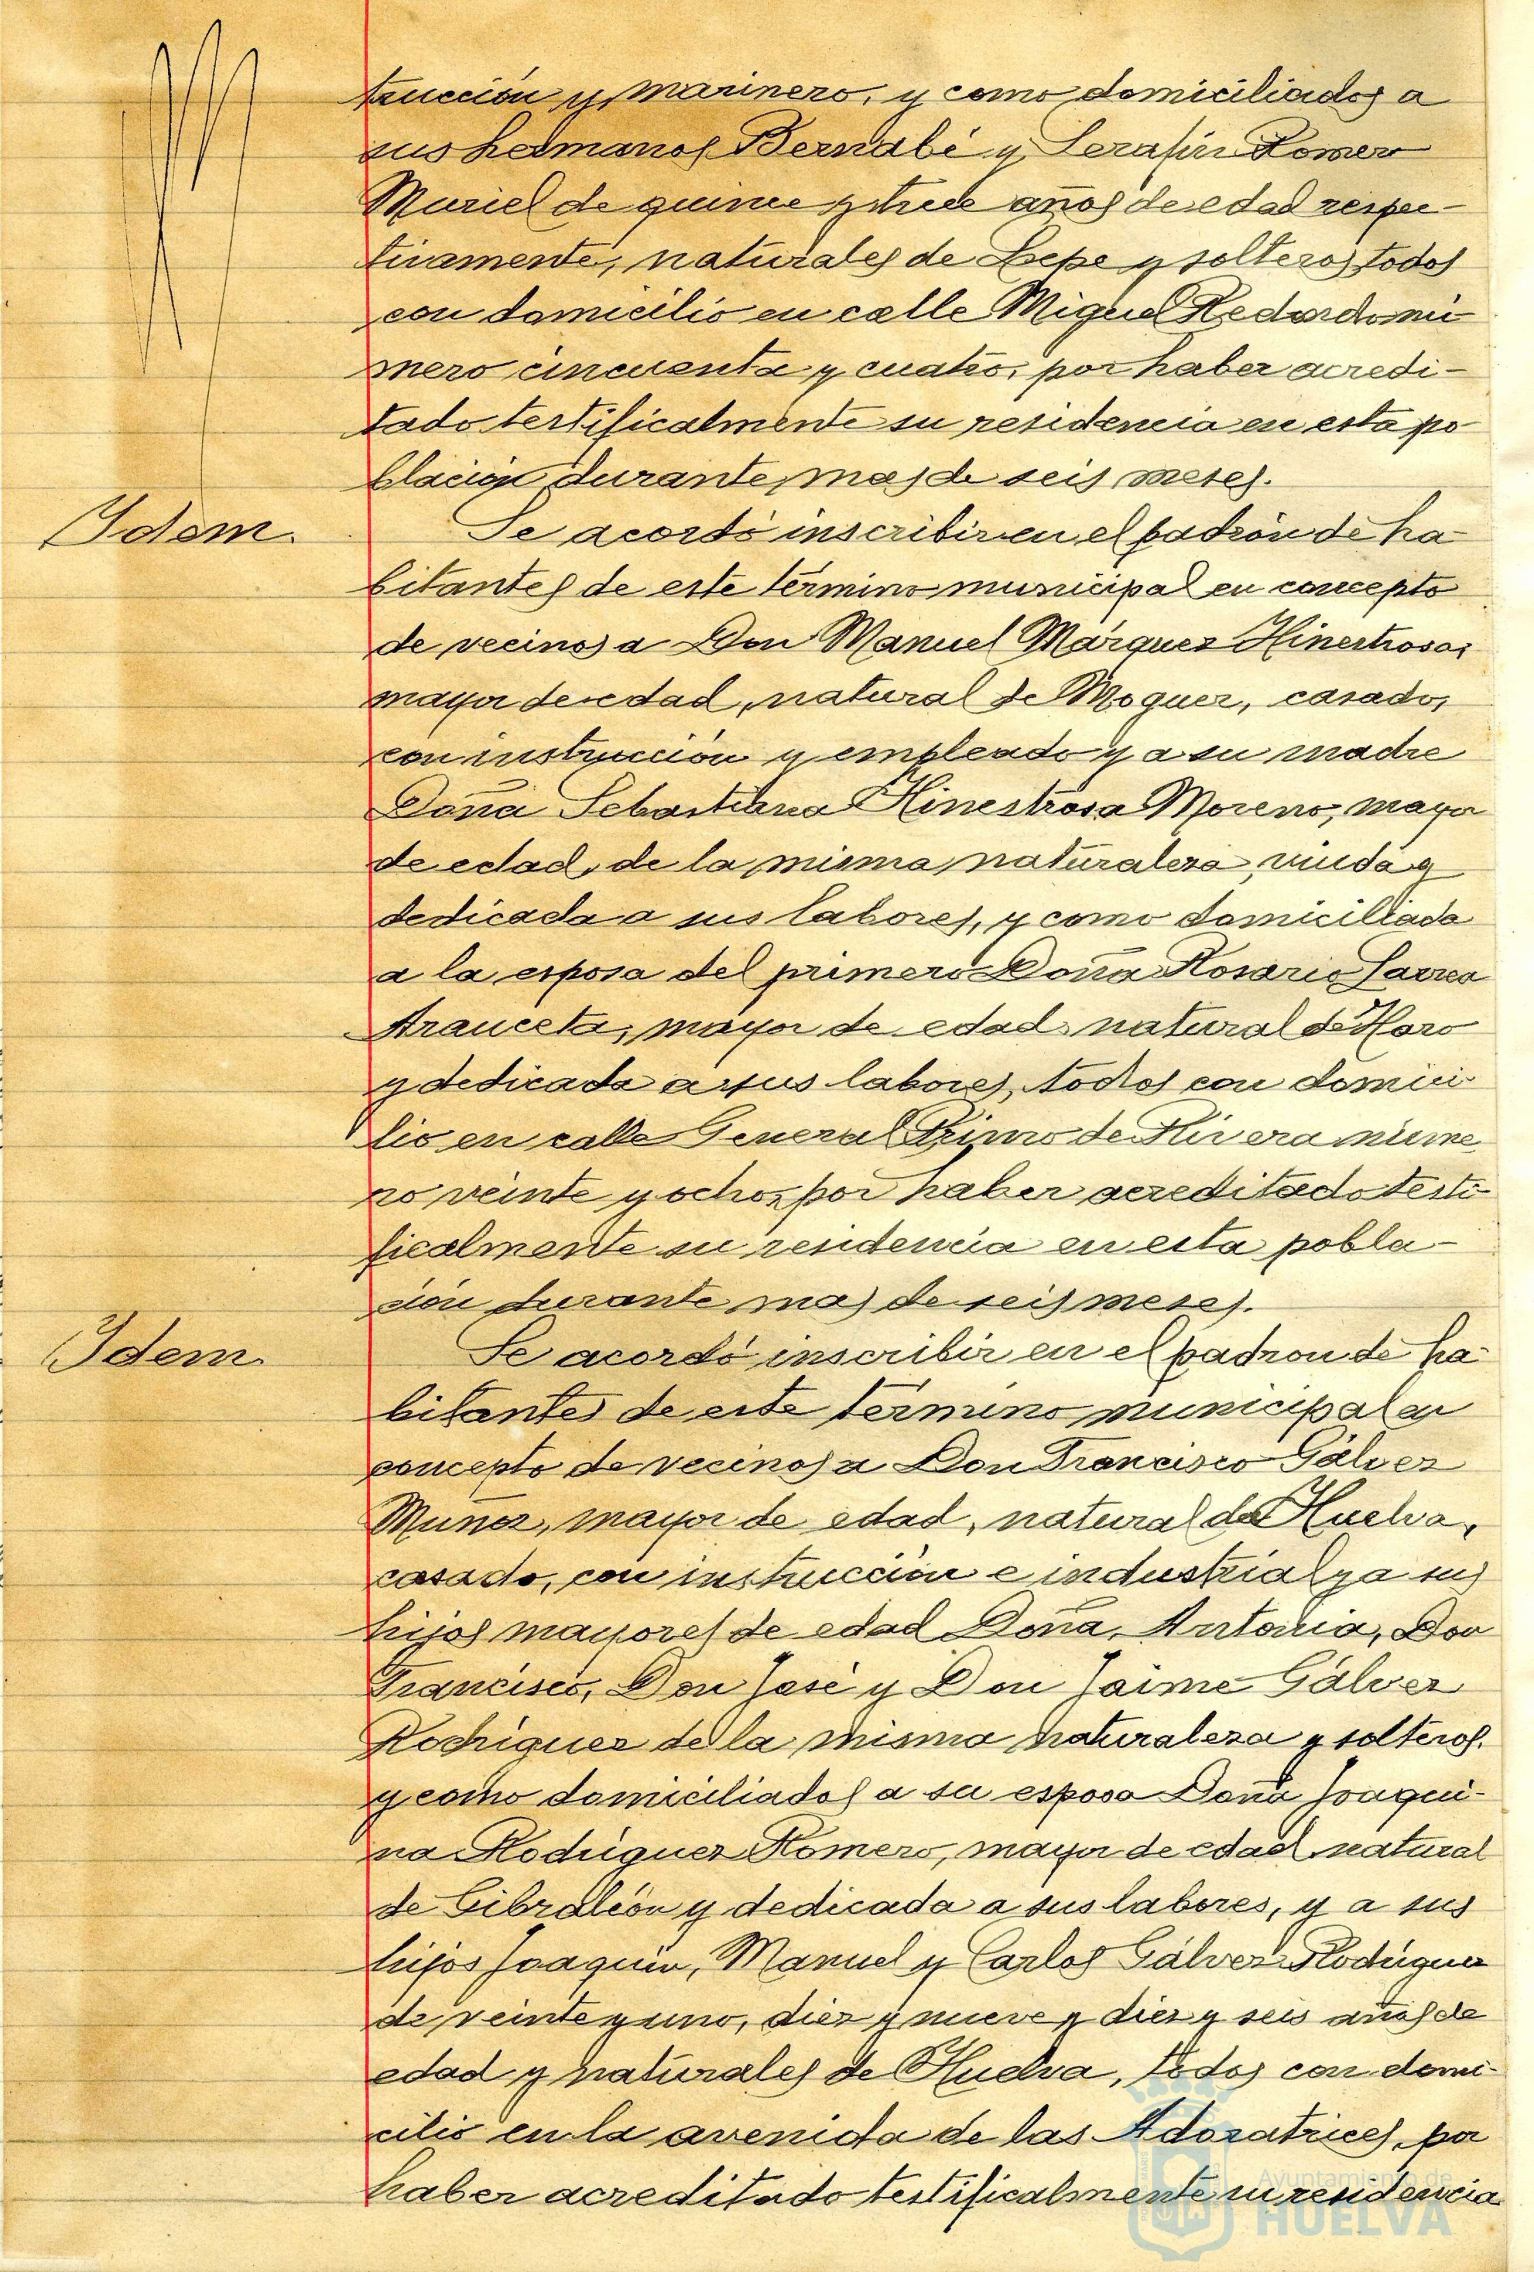 trucción y marinero, y como domiciliados a
sus hermanos Bernabé y Serafín Romero
Muriel de quince y trece años de edad respec-
tivamente, naturales de Lepe y solteros, todos
con domicilio en calle Miguel Redondo nú-
mero cincuenta y cuatro, por haber acredi-
tado testificalmente su residencia en esta po-
blación durante mas de seis meses.
Idem.
Se acordó inscribir en el padrón de ha-
bitantes de este término municipal en concepto
de vecinos a Don Manuel Márquez Hinestrosa,
mayor de edad, natural de Moguer, casado,
con instrucción y empleado y a su madre
Doña Sebastiana Hinestrosa Moreno, mayor
de edad, de la misma naturaleza, viuda y
dedicada a sus labores, y como domiciliada
a la esposa del primero Doña Rosario Larrea
Arauceta, mayor de edad, natural de Haro
y dedicada a sus labores, todos con domici-
lio en calle General Primo de Rivera núme
ro veinte y ocho, por haber acreditado testi-
ficalmente su residencia en esta pobla-
ción durante mas de seis meses.
Idem.
Se acordó inscribir en el padrón de ha-
bitantes de este término municipal en
concepto de vecinos a Don Francisco Gálvez
Muñoz, mayor de edad, natural de Huelva,
casado, con instrucción e industrial y a sus
hijos mayores de edad Doña Antonia, Don
Francisco, Don José y Don Jaime Gálvez
Rodríguez de la misma naturaleza y solteros.
y como domiciliados a su esposa Doña Joaqui-
na Rodríguez Romero, mayor de edad, natural
de Gibraleón y dedicada a sus labores, y a sus
hijos Joaquín, Manuel y Carlos Gálvez Rodríguez
de veinte y uno, diez y nueve y diez y seis años de
edad y naturales de Huelva, todos con domi-
cilio en la avenida de las Adoratrices, por
haber acreditado testificalmente su residencia
Ayuntamiento de
HUELVA